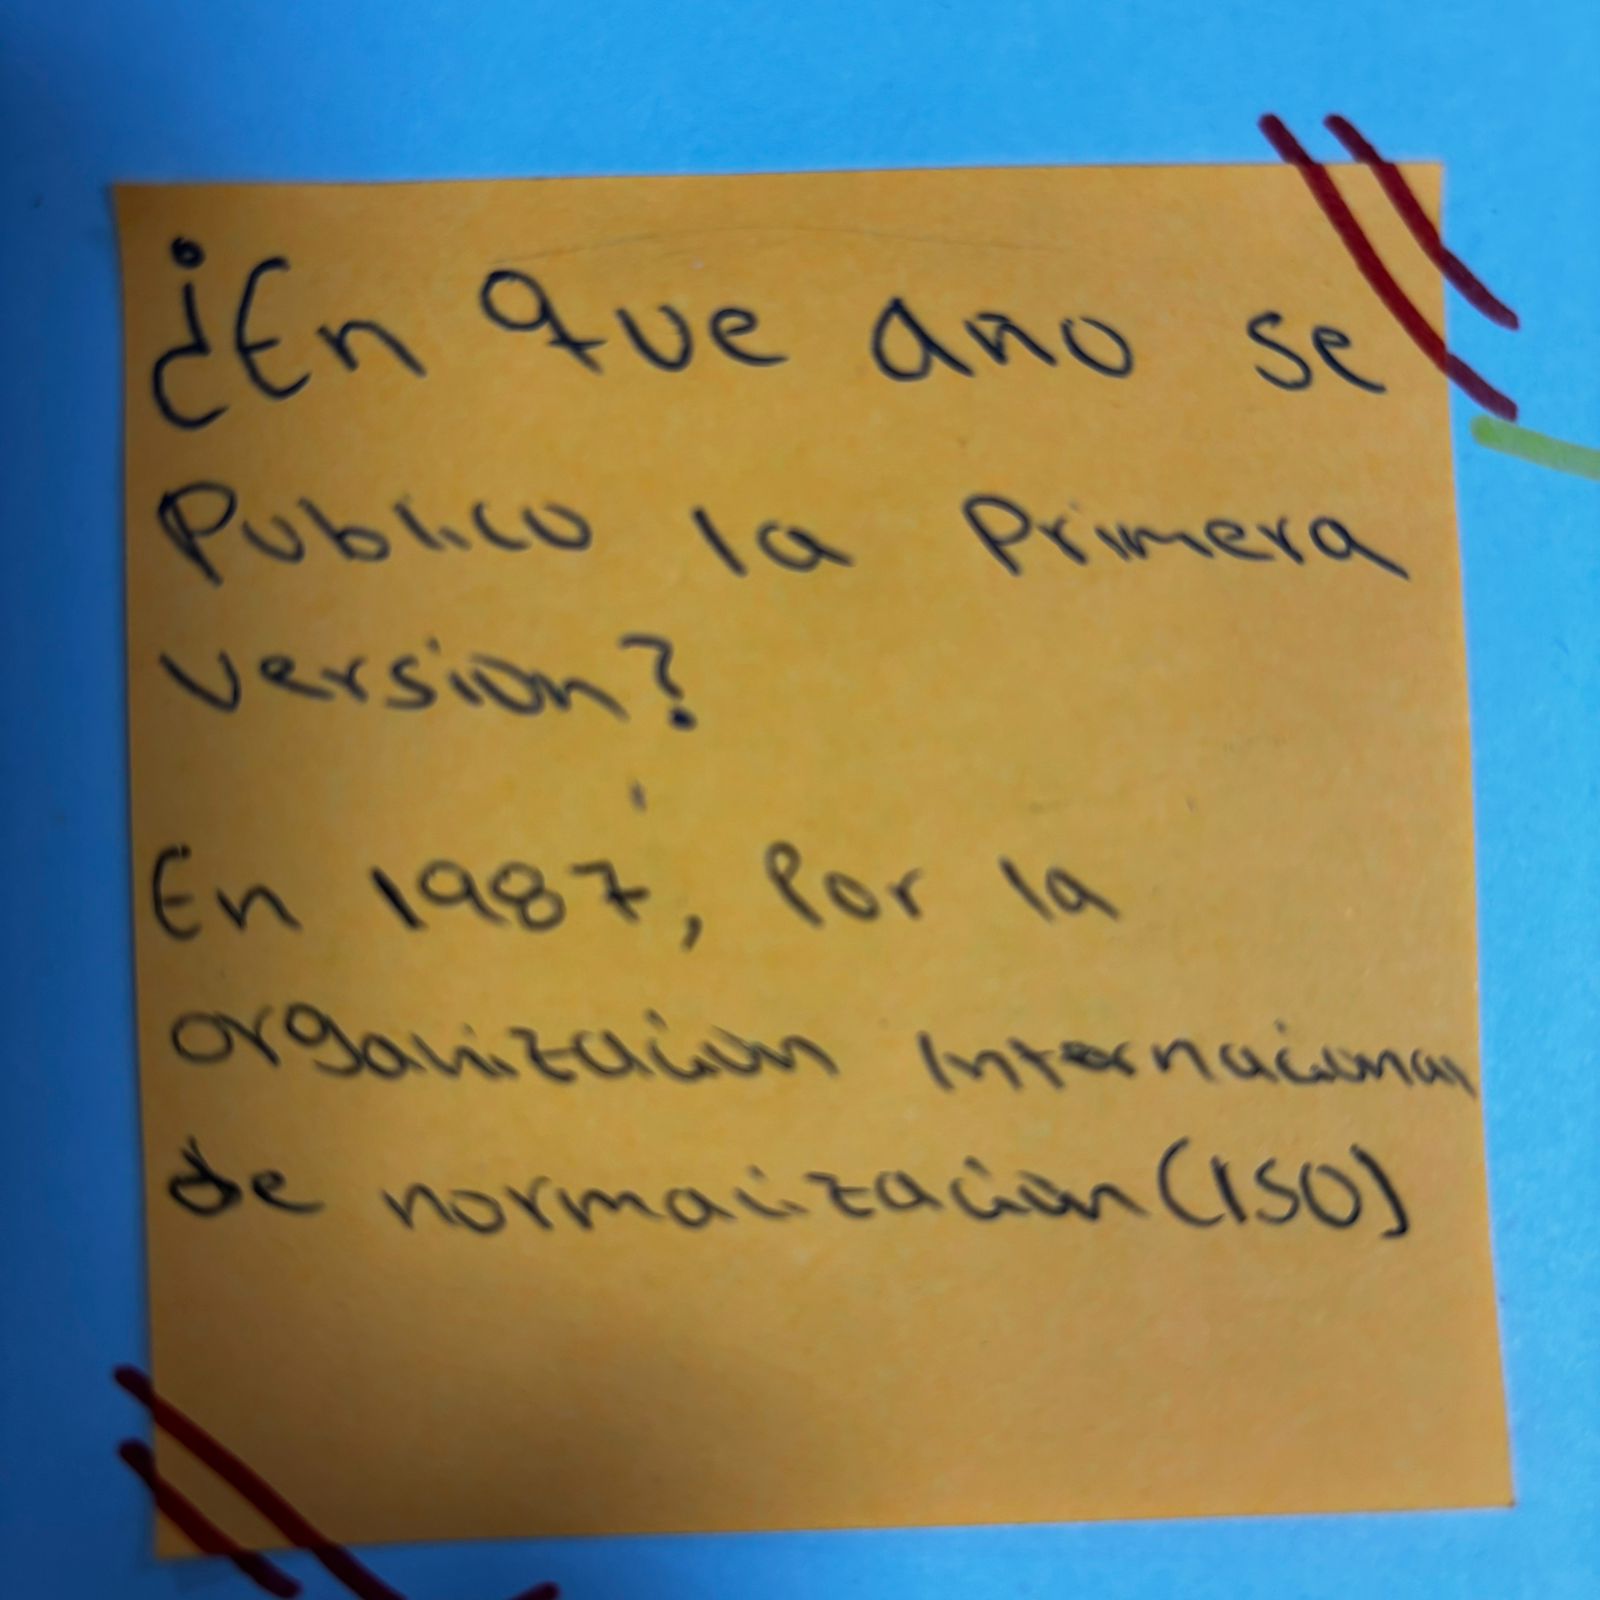 ¿En que ano se
Publico la Primera
version?
En 1987, Por la
organización Internacional
de normalización (ISO)